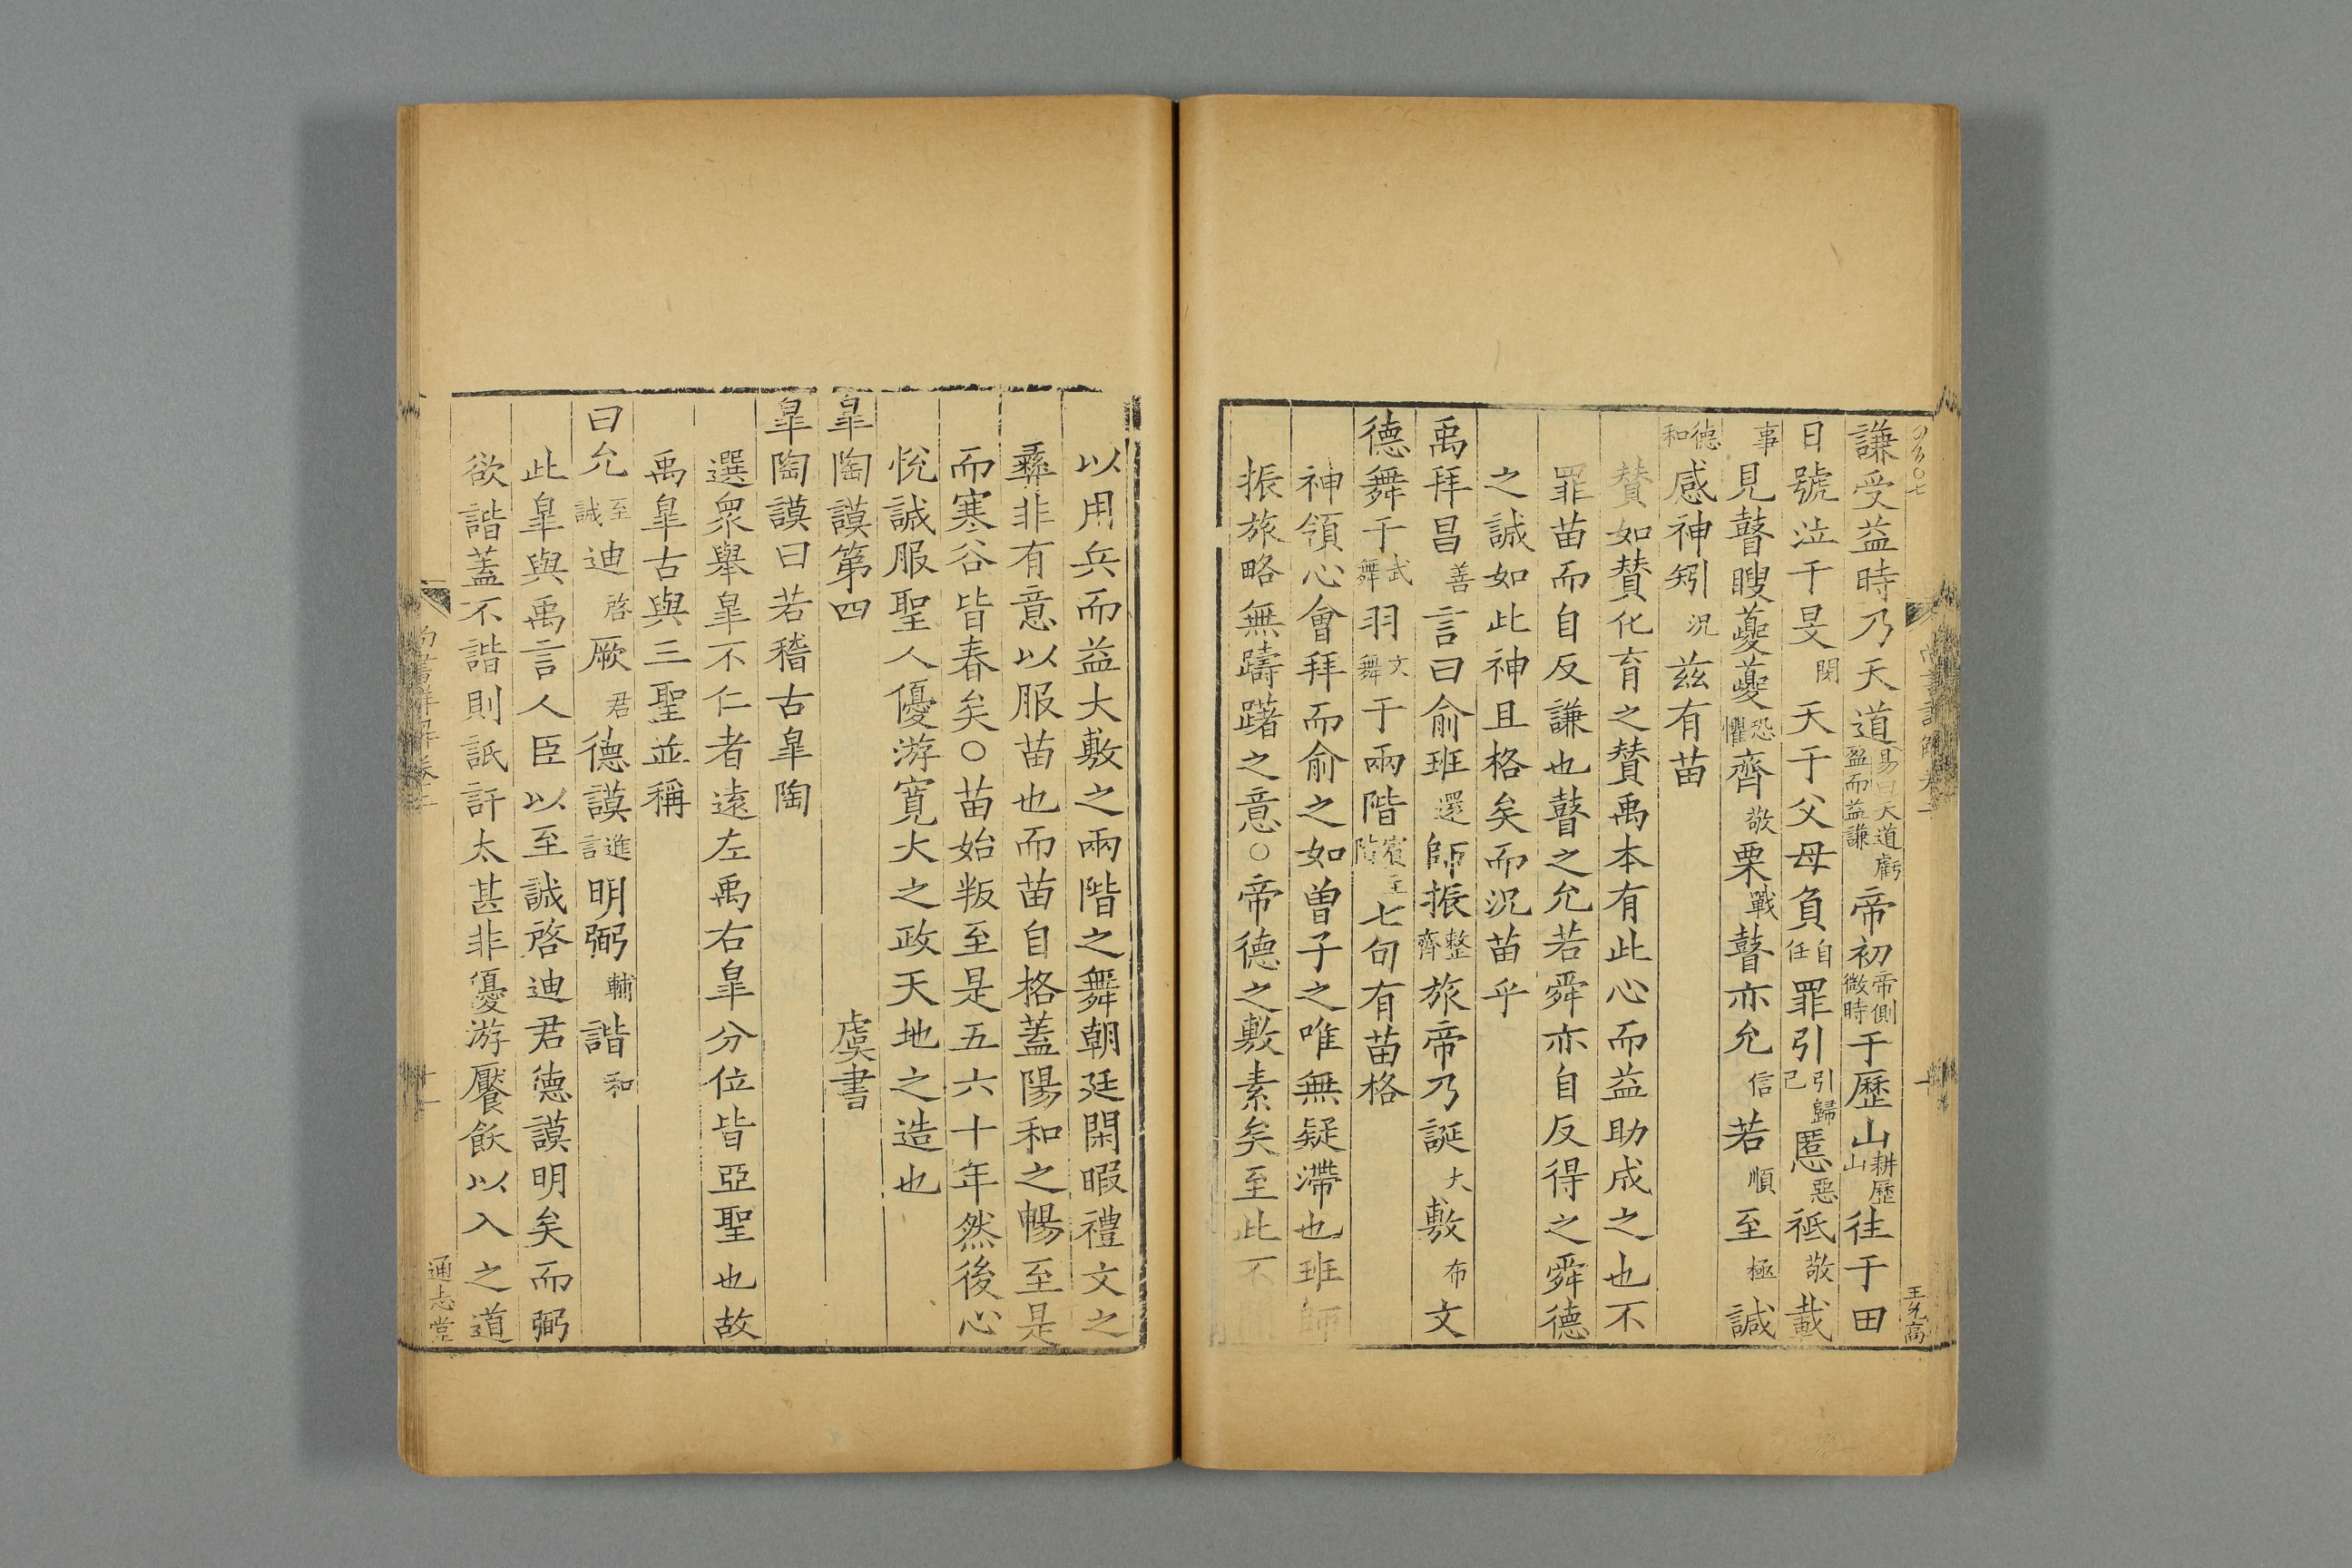 謙受益時乃天道易曰天道虧盈而益謙帝初帝側微時于歷山耕歷山往于田
日號泣于旻閔天于父母負自任罪引引歸己慝惡祗敬載
事見瞽瞍夔夔恐懼齊敬栗戰瞽亦允信若順至極諴
德和感神矧況兹有苗
贊如贊化育之贊禹本有此心而益助成之也不
罪苗而自反謙也瞽之允若舜亦自反得之舜德
之諴如此神且格矣而況苗乎
禹拜昌善言曰俞班還師振整齊旅帝乃誕大敷布文
德舞干武舞羽文舞于兩階賓主階七旬有苗格
神領心會拜而俞之如曽子之唯無疑滯也班師
振旅略無躊躇之意○帝德之敷素矣至此不
尚書詳解卷
王允高
以用兵而益大敷之兩階之舞朝廷閑暇禮文之
彝非有意以服苗也而苗自格蓋陽和之暢至是
而寒谷皆春矣○苗始叛至是五六十年然後心
悅誠服聖人優游寬大之政天地之造也
臯陶謨第四 虞書
臯陶謨曰若稽古臯陶
選衆舉臯不仁者遠左禹右臯分位皆亞聖也故
禹臯古與三聖並稱
曰允至誠迪啓厥君德謨進言明弼輔諧和
此臯與禹言人臣以至誠啓迪君德謨明矣而弼
欲諧蓋不諧則詆訐太甚非優游饜飫以入之道
尚書詳解卷二
十一
通志堂